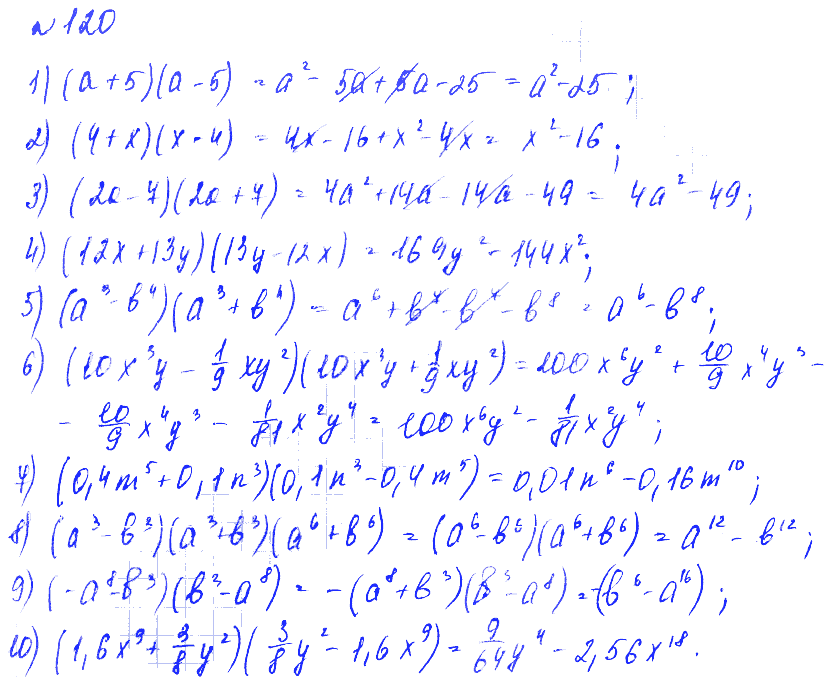 №120
1) (a+5)(a-5) = a² - 5a + 5a - 25 = a² - 25;
2) (4+x)(x-4) = 4x - 16 + x² - 4x = x² - 16;
3) (2a-7)(2a+7) = 4a² + 14a - 14a - 49 = 4a² - 49;
4) (12x+13y)(13y-12x) = 169y² - 144x²;
5) (a³-b⁴)(a³+b⁴) = a⁶ + b⁷ - b⁷ - b⁸ = a⁶ - b⁸;
6) (10x³y - 1/9 xy²)(10x³y + 1/9 xy²) = 100x⁶y² + 10/9 x⁴y³ -
- 10/9 x⁴y³ - 1/81 x²y⁴ = 100x⁶y² - 1/81 x²y⁴;
7) (0,4m⁵+0,1n³)(0,1n³-0,4m⁵) = 0,01n⁶ - 0,16m¹⁰;
8) (a³-b³)(a³+b³)(a⁶+b⁶) = (a⁶-b⁶)(a⁶+b⁶) = a¹² - b¹²;
9) (-a⁸-b³)(b³-a⁸) = -(a⁸+b³)(b³-a⁸) = -(b⁶-a¹⁶);
10) (1,6x⁹ + 3/8 y²)(3/8 y² - 1,6x⁹) = 9/64 y⁴ - 2,56x¹⁸.